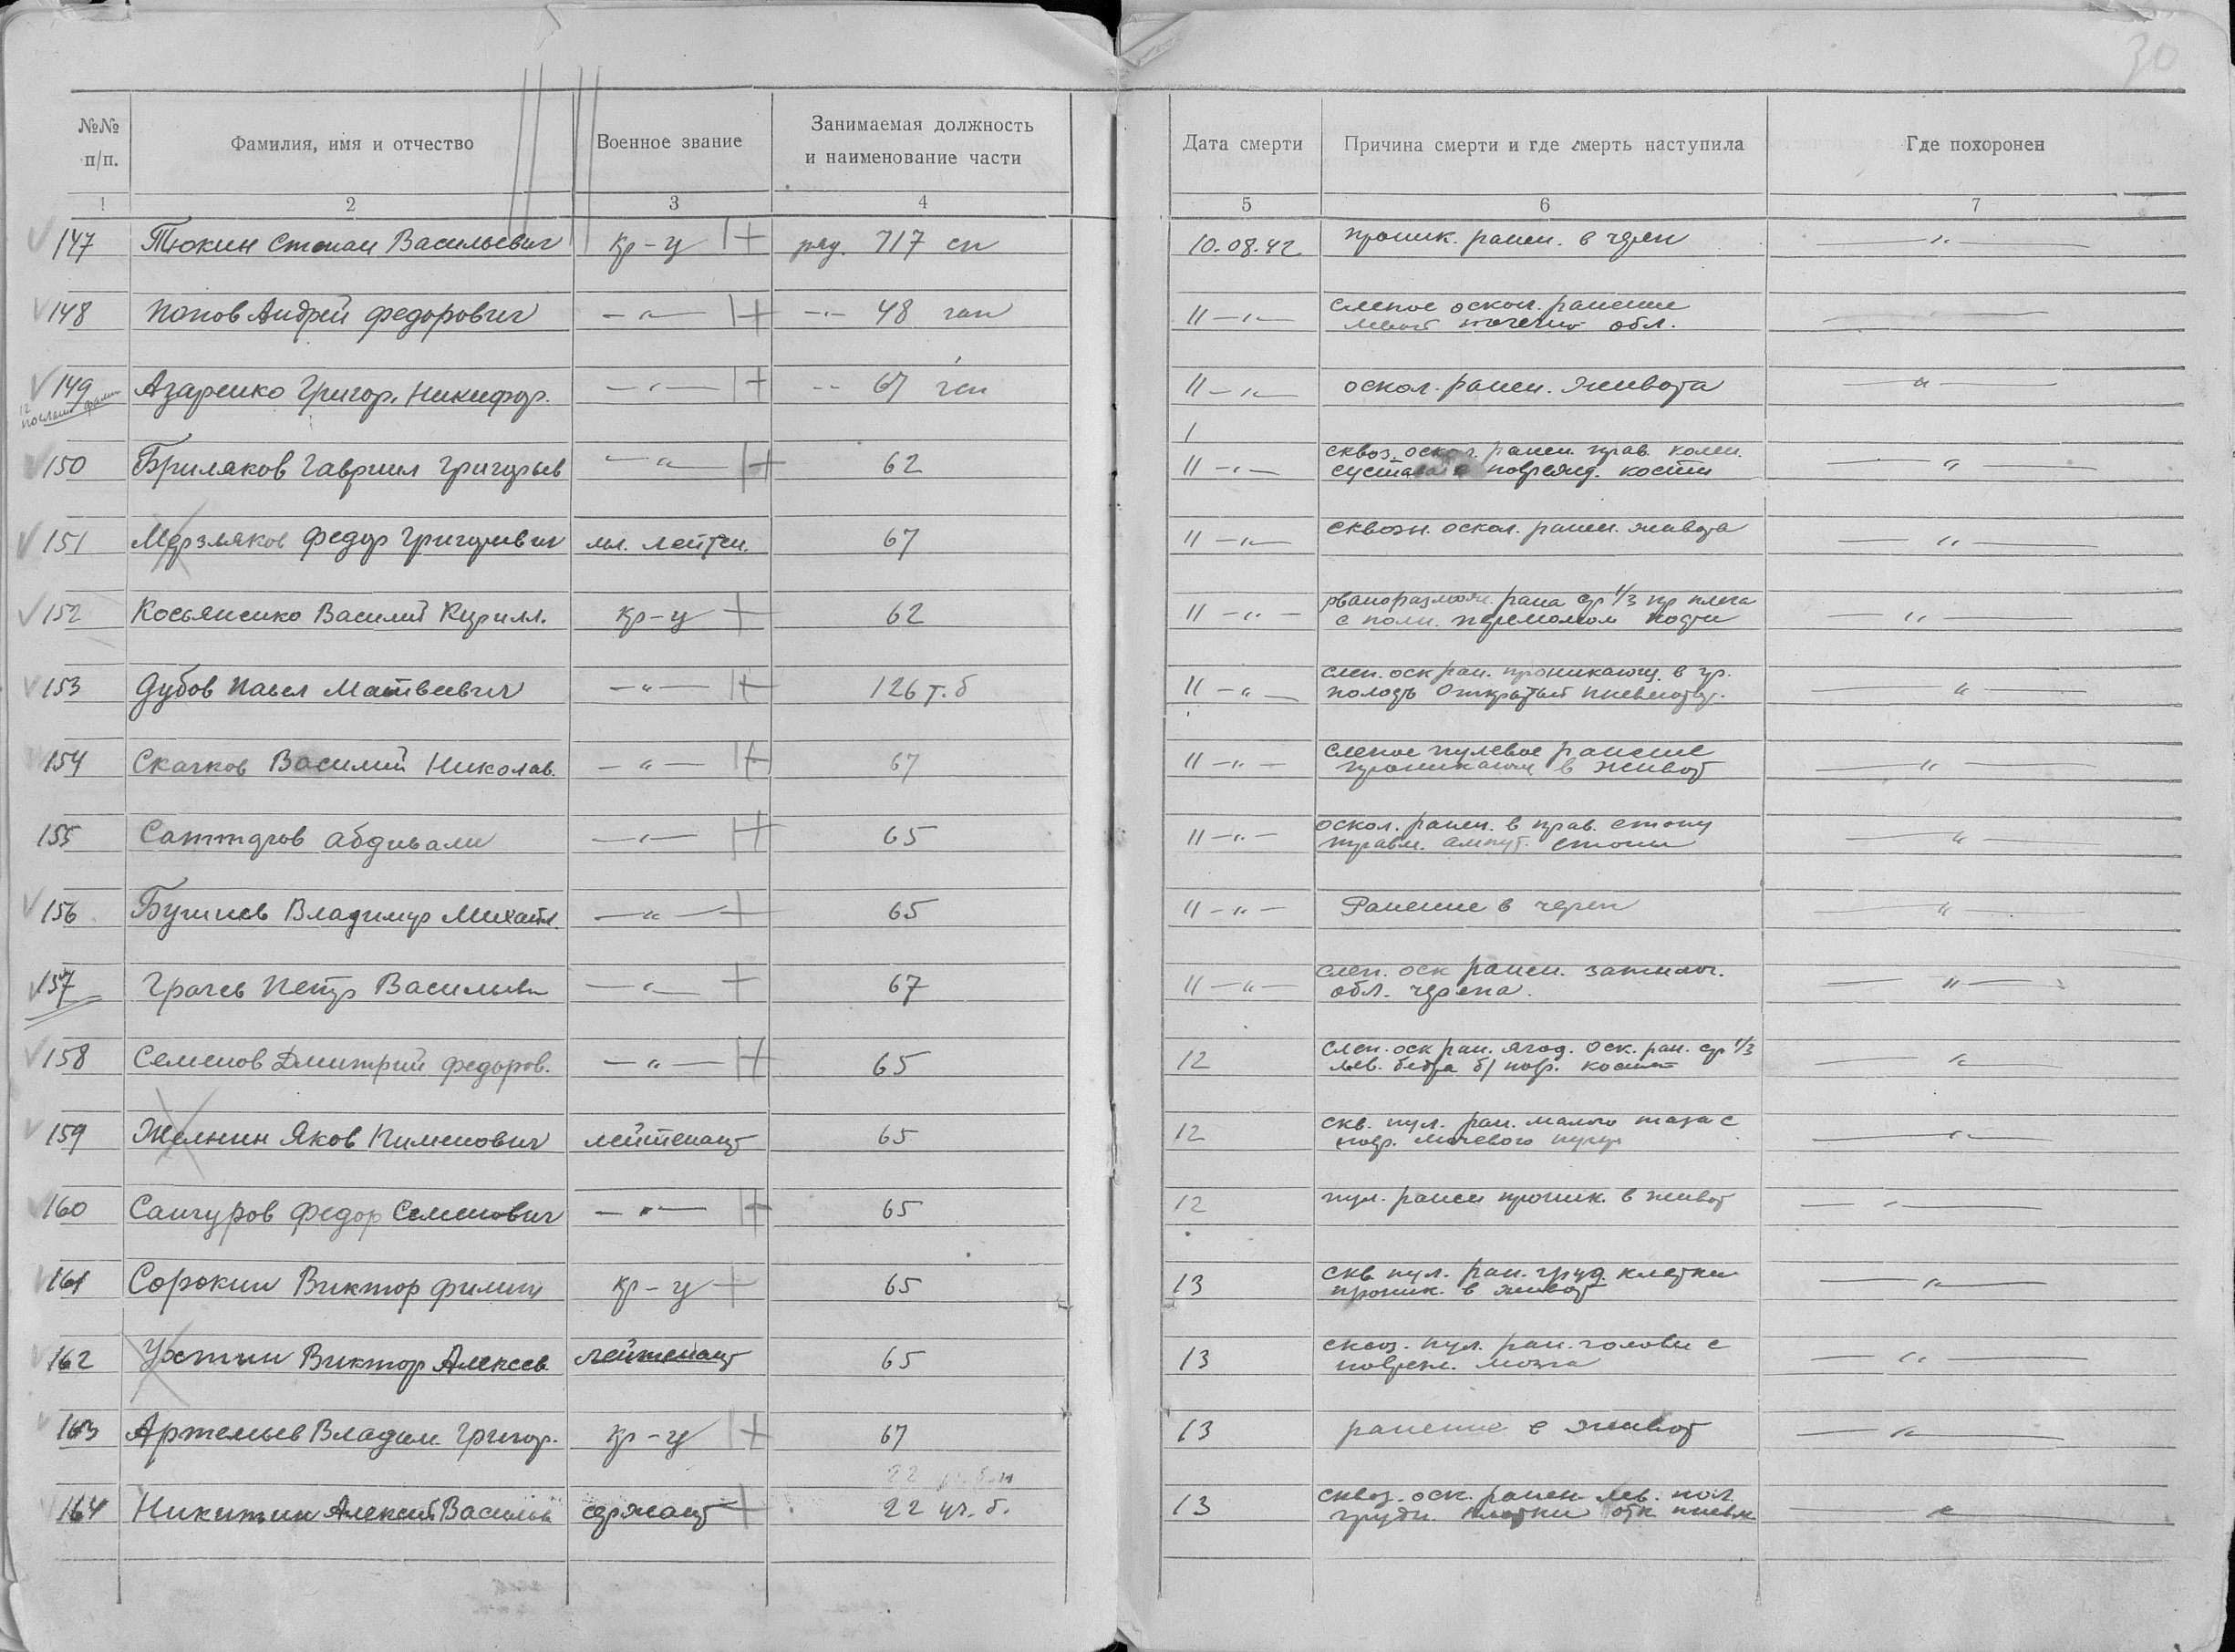 30
№№ п/п. Фамилия, имя и отчество Военное звание Занимаемая должность и наименование части Дата смерти Причина смерти и где смерть наступила Где похоронен
1 2 3 4 5 6 7
147 Тюкин Степан Васильевич кр-ц ряд. 717 сп 10.08.42 проник. ранен. в череп —"—
148 Попов Андрей Федорович —"— —"— 48 гап 11 —"— слепое оскол. ранение
левой обл.
149 Азаренко Григор. Никифор. —"— —"— 67 11 —"— оскол. ранен. живота —"—
150 Бриляков Гавриил Григорьев —"— 62 11 —"— сквоз. оскол. ранен. прав. колен. —"—
сустава с поврежд. кости
151 Мерзляков Федор Григорьевич мл. лейтен. 67 11 —"— сквозн. оскол. ранен. живота —"—
152 Косьяненко Василий Кирилл. кр-ц 62 11 —"— рваноразмозж. рана ср 1/3 пр плеча —"—
с полн. переломом кости
153 Дубов Павел Матвеевич —"— 126 т.б 11 —"— слеп. оск ран. проникающ. в гр. —"—
полость Открытый пневмотор.
154 Скачков Василий Николав. —"— 67 11 —"— слепое пулевое ранение —"—
проникающ в живот
155 Саттаров Абдивали —"— 65 11 —"— оскол. ранен. в прав. стопу —"—
травм. ампут. стопы
156 Владимир Михайл. —"— 65 11 —"— Ранение в череп —"—
157 Грачев Петр Васильеви —"— 67 11 —"— слеп. оск ранен. затылоч. —"—
обл. черепа.
158 Семенов Дмитрий Федоров. —"— 65 12 Слеп. оск ран. ягод. Оск. ран. ср 1/3 —"—
лев. бедра б/ повр. костей
159 Желнин Яков Пименович лейтенант 65 12 скв. пул. ран. малого таза с —"—
повр. мочевого пузыря
160 Сангуров Федор Семенович —"— 65 12 пул. ранен проник. в живот —"—
161 Сорокин Виктор Филип кр-ц 65 13 скв пул. ран. груд. клетки —"—
проник. в живот
162 Устин Виктор Алексев. лейтенант 65 13 сквоз. пул. ран. головы с —"—
поврежд. мозга
163 Артемьев Владим. Григор. кр-ц 67 13 ранение в живот —"—
164 Никитин Алексей Васильев сержант 22 уч. б. 13 сквоз. оск. ранен лев. пол. —"—
грудн. клетки отк пневм